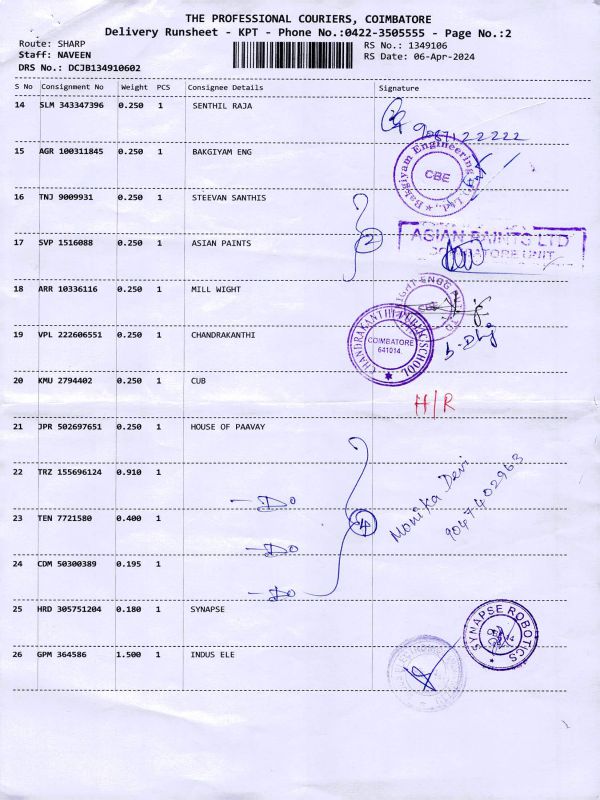 THE PROFESSIONAL COURIERS, COIMBATORE
Delivery Runsheet - KPT - Phone No.:0422-3505555 - Page No.:2
Route: SHARP
Staff: NAVEEN
DRS No.: DCJB134910602
RS No.: 1349106
RS Date: 06-Apr-2024
S No Consignment No Weight PCS Consignee Details Signature
14 SLM 343347396 0.250 1 SENTHIL RAJA
15 AGR 100311845 0.250 1 BAKGIYAM ENG
Bakgiyam Engineering
CBE
16 TNJ 9009931 0.250 1 STEEVAN SANTHIS
17 SVP 1516088 0.250 1 ASIAN PAINTS
2
ASIAN PAINTS LTD
COIMBATORE UNIT
18 ARR 10336116 0.250 1 MILL WIGHT
CBE
19 VPL 222606551 0.250 1 CHANDRAKANTHI
CHANDRAKANTHI PUBLIC SCHOOL
COIMBATORE
641014
20 KMU 2794402 0.250 1 CUB
H/R
21 JPR 502697651 0.250 1 HOUSE OF PAAVAY
22 TRZ 155696124 0.910 1
— Do
23 TEN 7721580 0.400 1
— Do
24 CDM 50300389 0.195 1
— Do
4
Monika Devi
9047402963
25 HRD 305751204 0.180 1 SYNAPSE
SYNAPSE ROBOTICS
26 GPM 364586 1.500 1 INDUS ELE